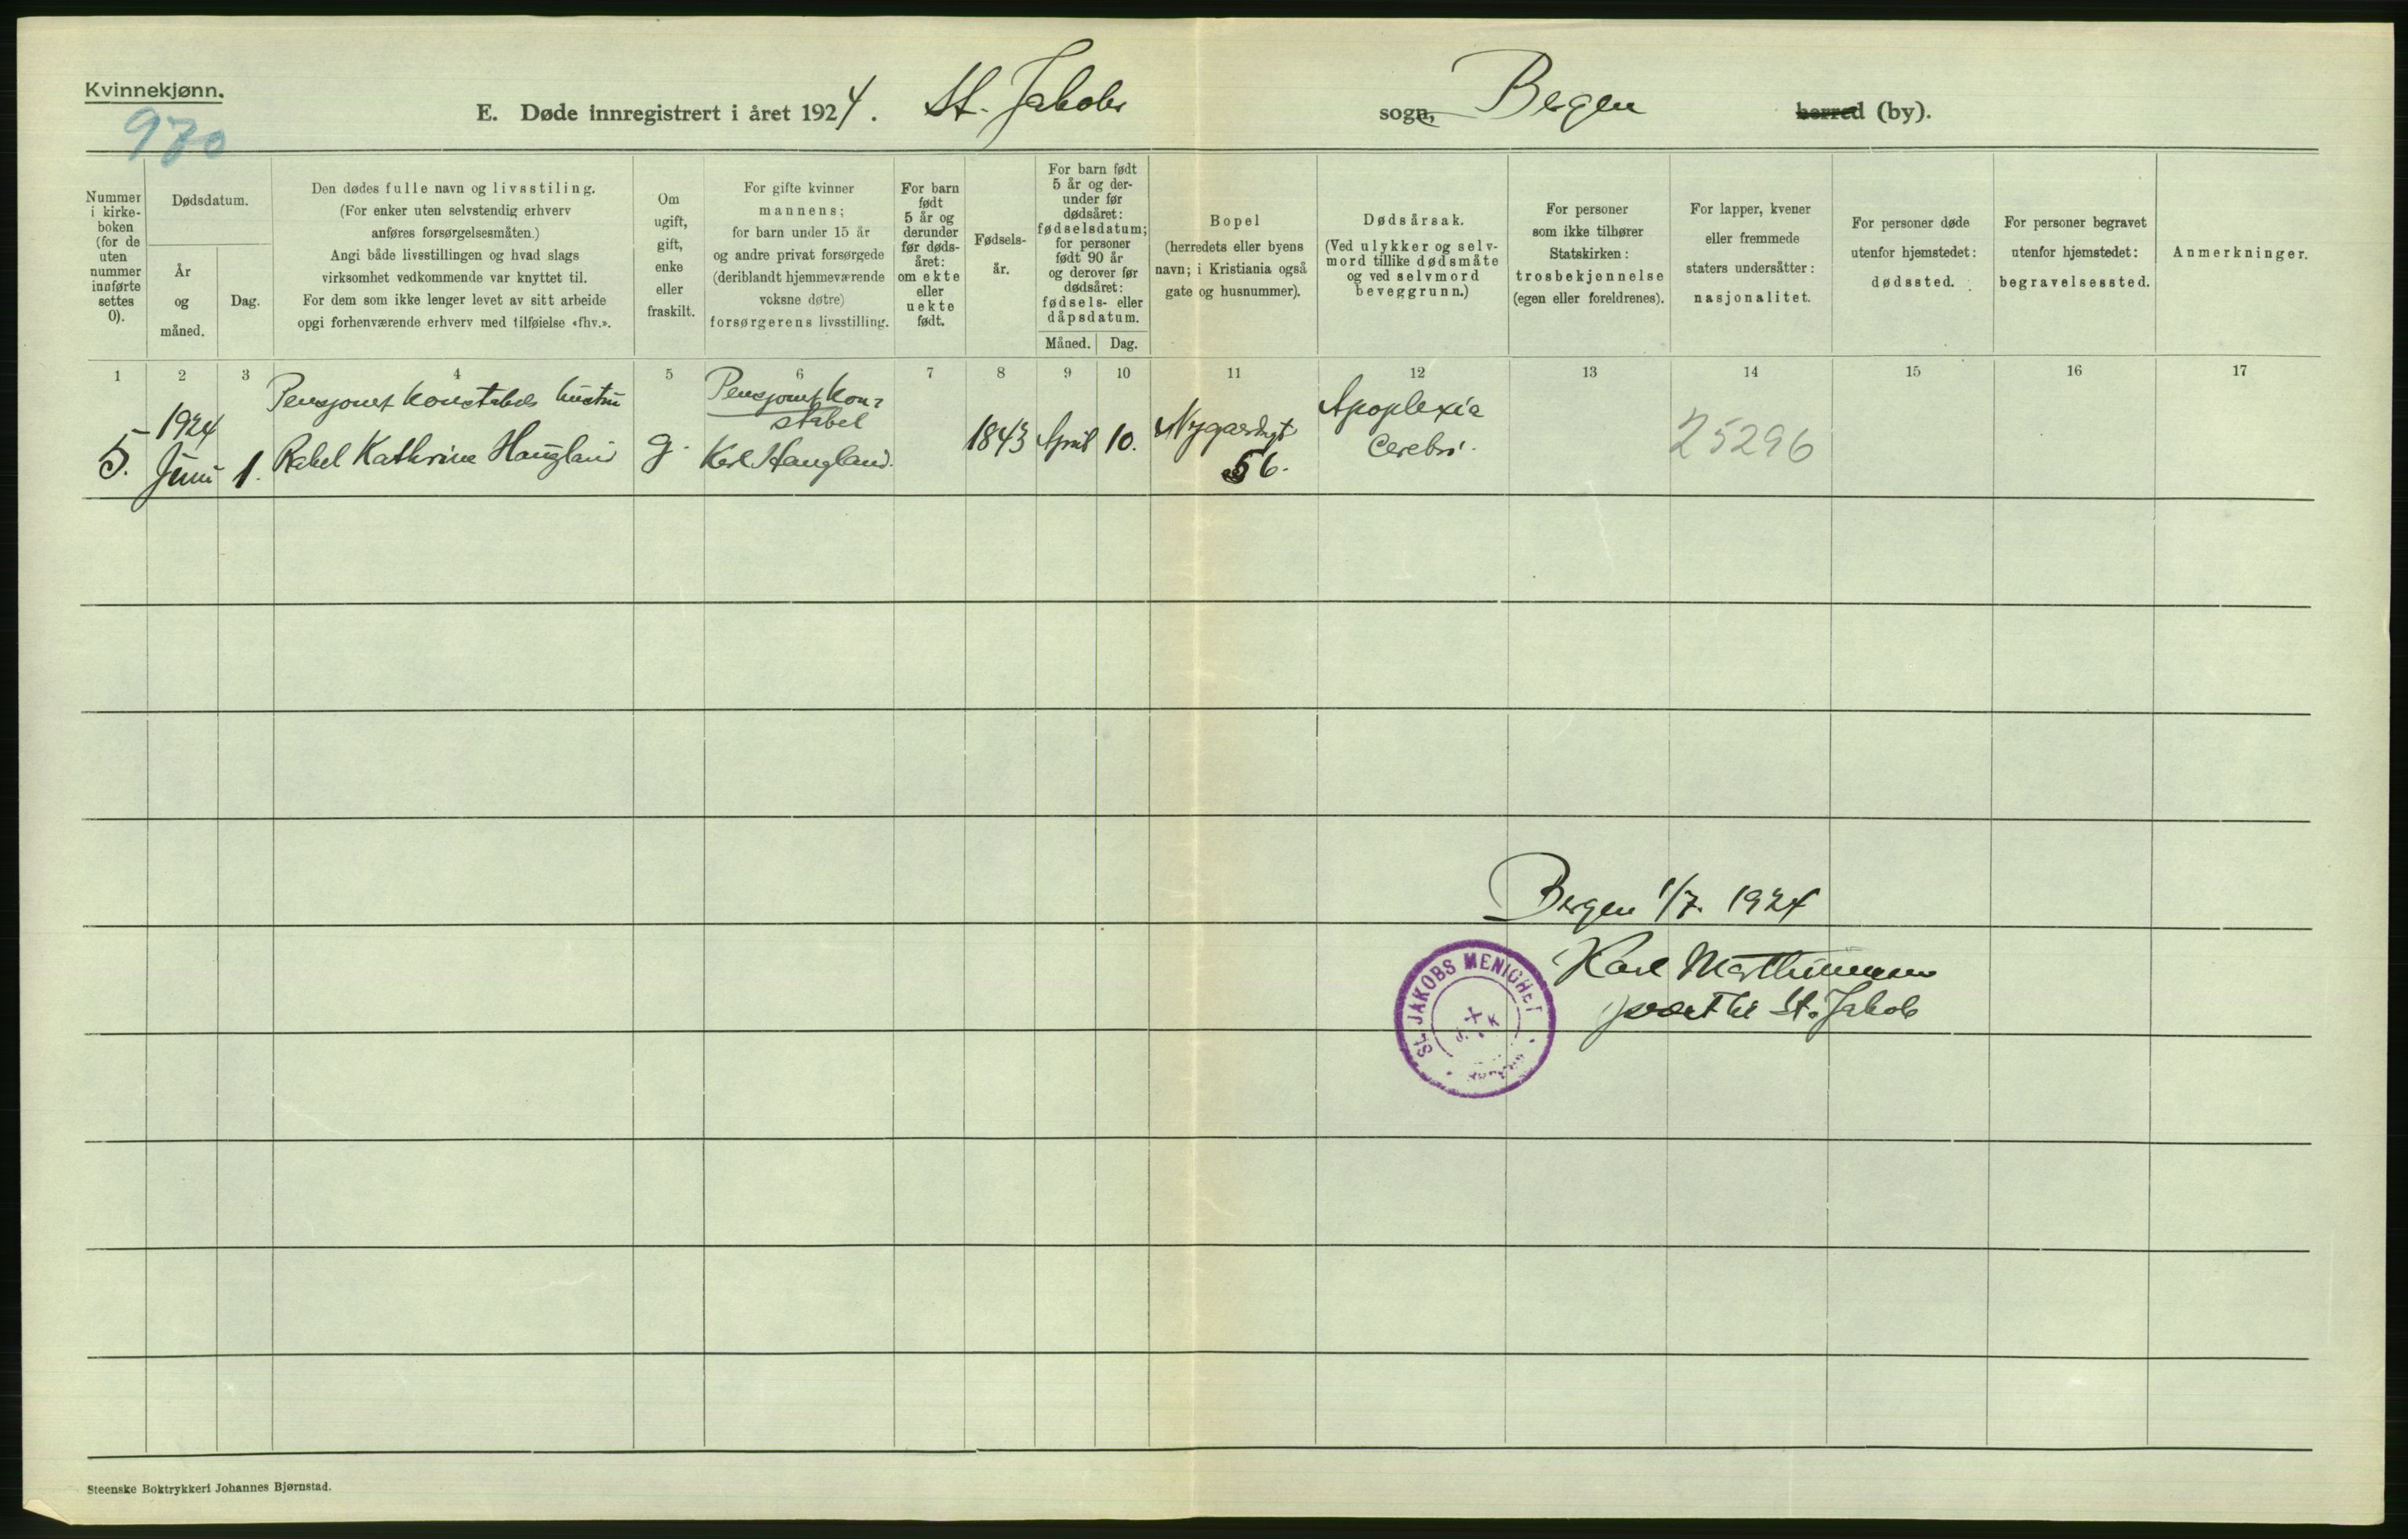 Kvinnekjønn.
970
E. Døde innregistrert i året 1924. St. Jakobs sogn, Bergen herred (by).
Nummer
i kirke-
boken
(for de
uten
nummer
innførte
settes
0).
Dødsdatum.
År
og
måned.
Dag.
Den dødes fulle navn og livsstiling.
(For enker uten selvstendig erhverv
anføres forsørgelsesmåten.)
Angi både livsstillingen og hvad slags
virksomhet vedkommende var knyttet til.
For dem som ikke lenger levet av sitt arbeide
opgi forhenværende erhverv med tilføielse «fhv.».
Om
ugift,
gift,
enke
eller
fraskilt.
For gifte kvinner
mannens;
for barn under 15 år
og andre privat forsørgede
(deriblandt hjemmeværende
voksne døtre)
forsørgerens livsstilling.
For barn
født
5 år og
derunder
før døds-
året:
om ekte
eller
uekte
født.
Fødsels-
år.
For barn født
5 år og der-
under før
dødsåret:
fødselsdatum;
for personer
født 90 år
og derover før
dødsåret:
fødsels- eller
dåpsdatum.
Måned. Dag.
Bopel
(herredets eller byens
navn; i Kristiania også
gate og husnummer).
Dødsårsak.
(Ved ulykker og selv-
mord tillike dødsmåte
og ved selvmord
beveggrunn.)
For personer
som ikke tilhører
Statskirken:
trosbekjennelse
(egen eller foreldrenes).
For lapper, kvener
eller fremmede
staters undersåtter:
nasjonalitet.
For personer døde
utenfor hjemstedet:
dødssted.
For personer begravet
utenfor hjemstedet:
begravelsessted.
Anmerkninger.
1 2 3 4 5 6 7 8 9 10 11 12 13 14 15 16 17
5.
1924
Juni
1.
Pensjonert konstabels hustru
Rakel Kathrine Haugland
g.
Pensjonert kon-
stabel
Karl Haugland.
1843
April
10.
Nygaardsgt
56.
Apoplexia
Cerebri.
25296
Bergen 1/7. 1924
Karl Marthinussen
prest til St. Jakob
ST. JAKOBS MENIGHET
Steenske Boktrykkeri Johannes Bjørnstad.